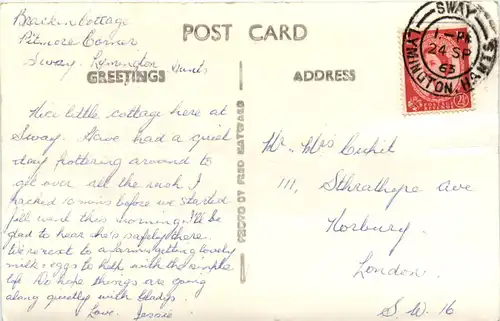 Bracken Cottage
Pitmore Corner
Sway. Lymington
Hants
POST CARD
GREETINGS
ADDRESS
SWAY
1 - PM
24 SP
63
LYMINGTON, HANTS
Nice little cottage here at
Sway. Have had a quiet
day pottering around to
get over all the rush I
packed 10 mins before we started
fell went this morning. I'll be
glad to hear she's safely there.
We're next to a farm getting lovely
milk & eggs to help with the simple
life. Do hope things are going
along quietly with Gladys.
Love. Jessie
PHOTO BY FRED
Mr. Mrs
111, Strathyre Ave
Norbury.
London.
S.W. 16